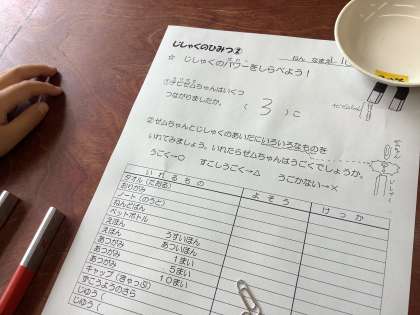 じしゃくのひみつ②
ねん なまえ
☆ じしゃくのパワーをしらべよう！
①チビゼムちゃんはいくつ
つながりましたか。 （ 3 ）こ
②ゼムちゃんとじしゃくのあいだにいろいろなものを
いれてみましょう。いれたらゼムちゃんはうごくでしょうか。
うごく→○ すこしうごく→△ うごかない→×
いれるもの よそう けっか
タオル（たおる）
おりがみ
ノート（のうと）
ねんどばん
ペットボトル
えほん うすいほん
えほん あついほん
あつがみ 1まい
あつがみ 5まい
あつがみ 10まい
キャップ（きゃっぷ）
すごうようのさら
じゆう（
じゆう（